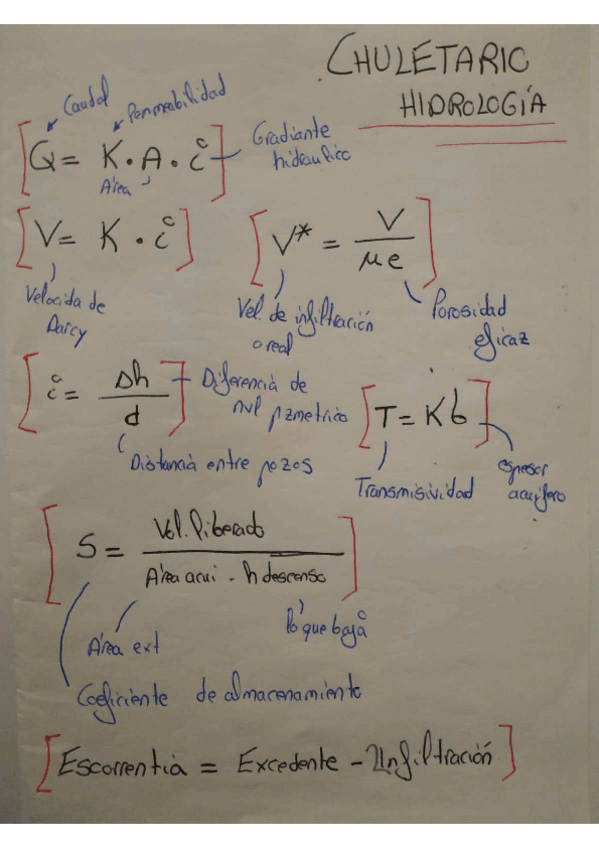 CHULETARIO
HIDROLOGÍA
Caudal
Permeabilidad
[Q = K · A · i]
Área
Gradiante
hidraulico
[V = K · i]
Velocida de
Darcy
[V* = V / μe]
Vel. de infiltración
o real
Porosidad
eficaz
[i = Δh / d]
Diferencia de
nvl pzmetrico
Distancia entre pozos
[T = Kb]
Transmisividad
espesor
acuífero
[S = Vol. liberado / Área acui · h descenso]
Área ext
lo que baja
Coeficiente de almacenamiento
[Escorrentia = Excedente - Infiltración]